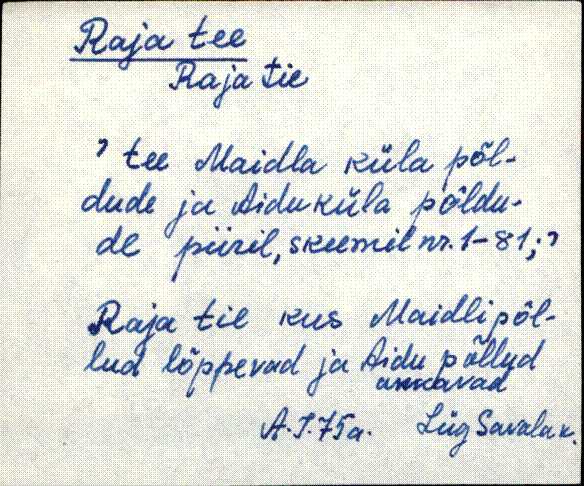 Raja tee
Raja tie
? tee Maidla küla põl-
dude ja Aidu küla põldu-
de piiril, skeemil nr. 1-81; ?
Raja tie kus Maidli põl-
lud lõppevad ja Aidu põllud
akkavad
A. I. 75a. Lüg Savala k.